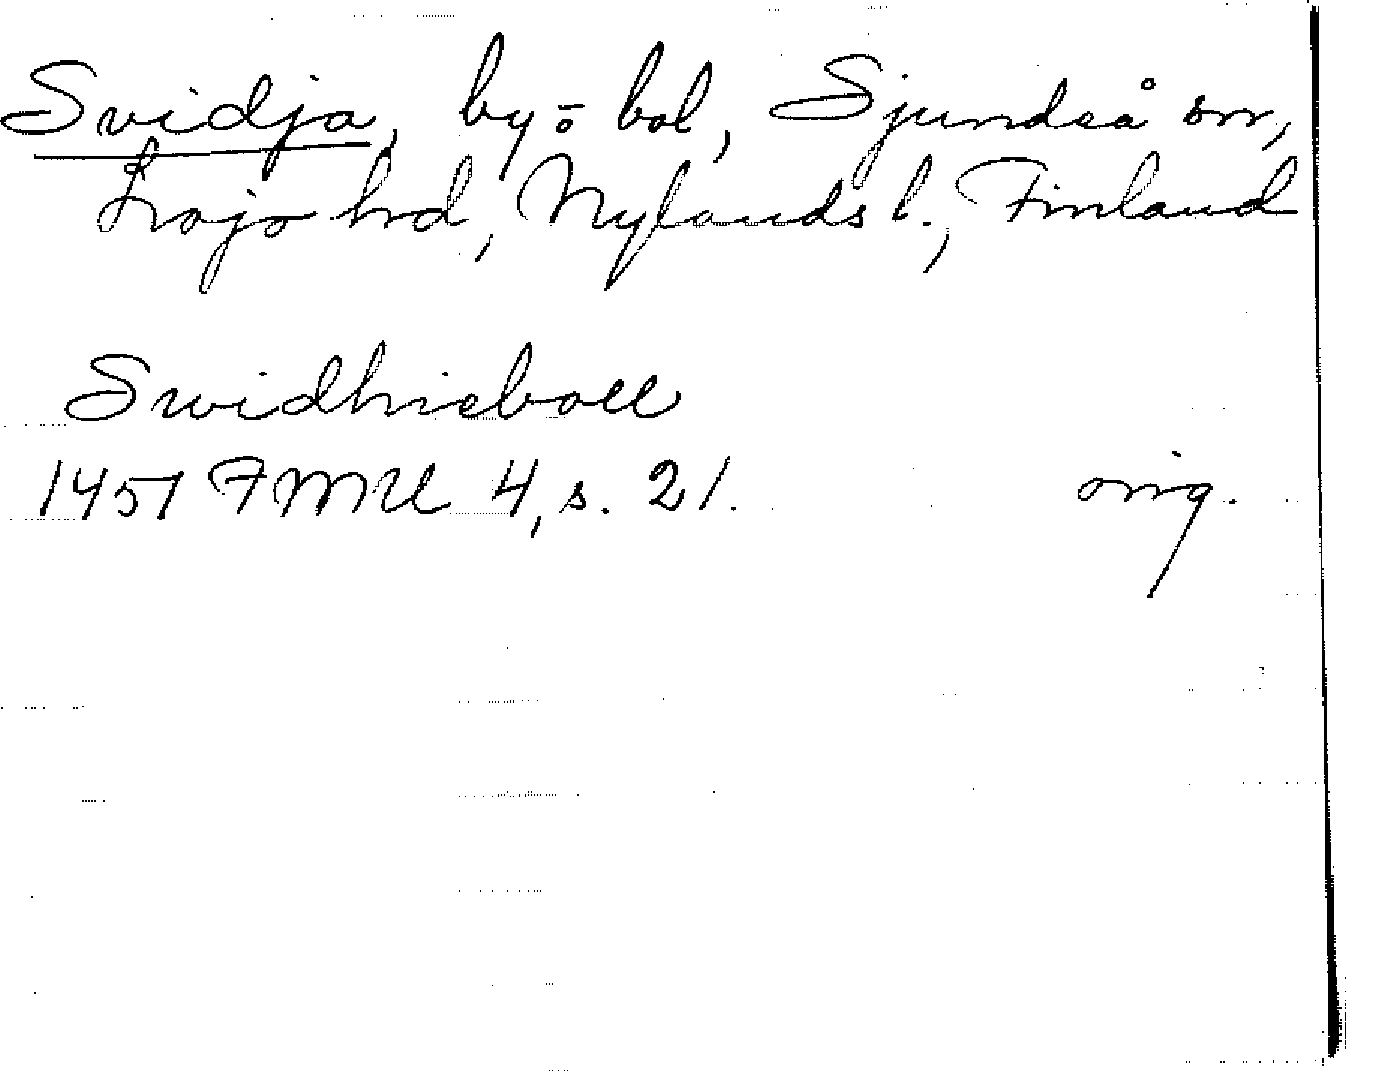 Svidja, by o bol, Sjundeå sn,
Lojo hd, Nylands l., Finland
Swidhieboll
1451 FMU 4, s. 21. orig.